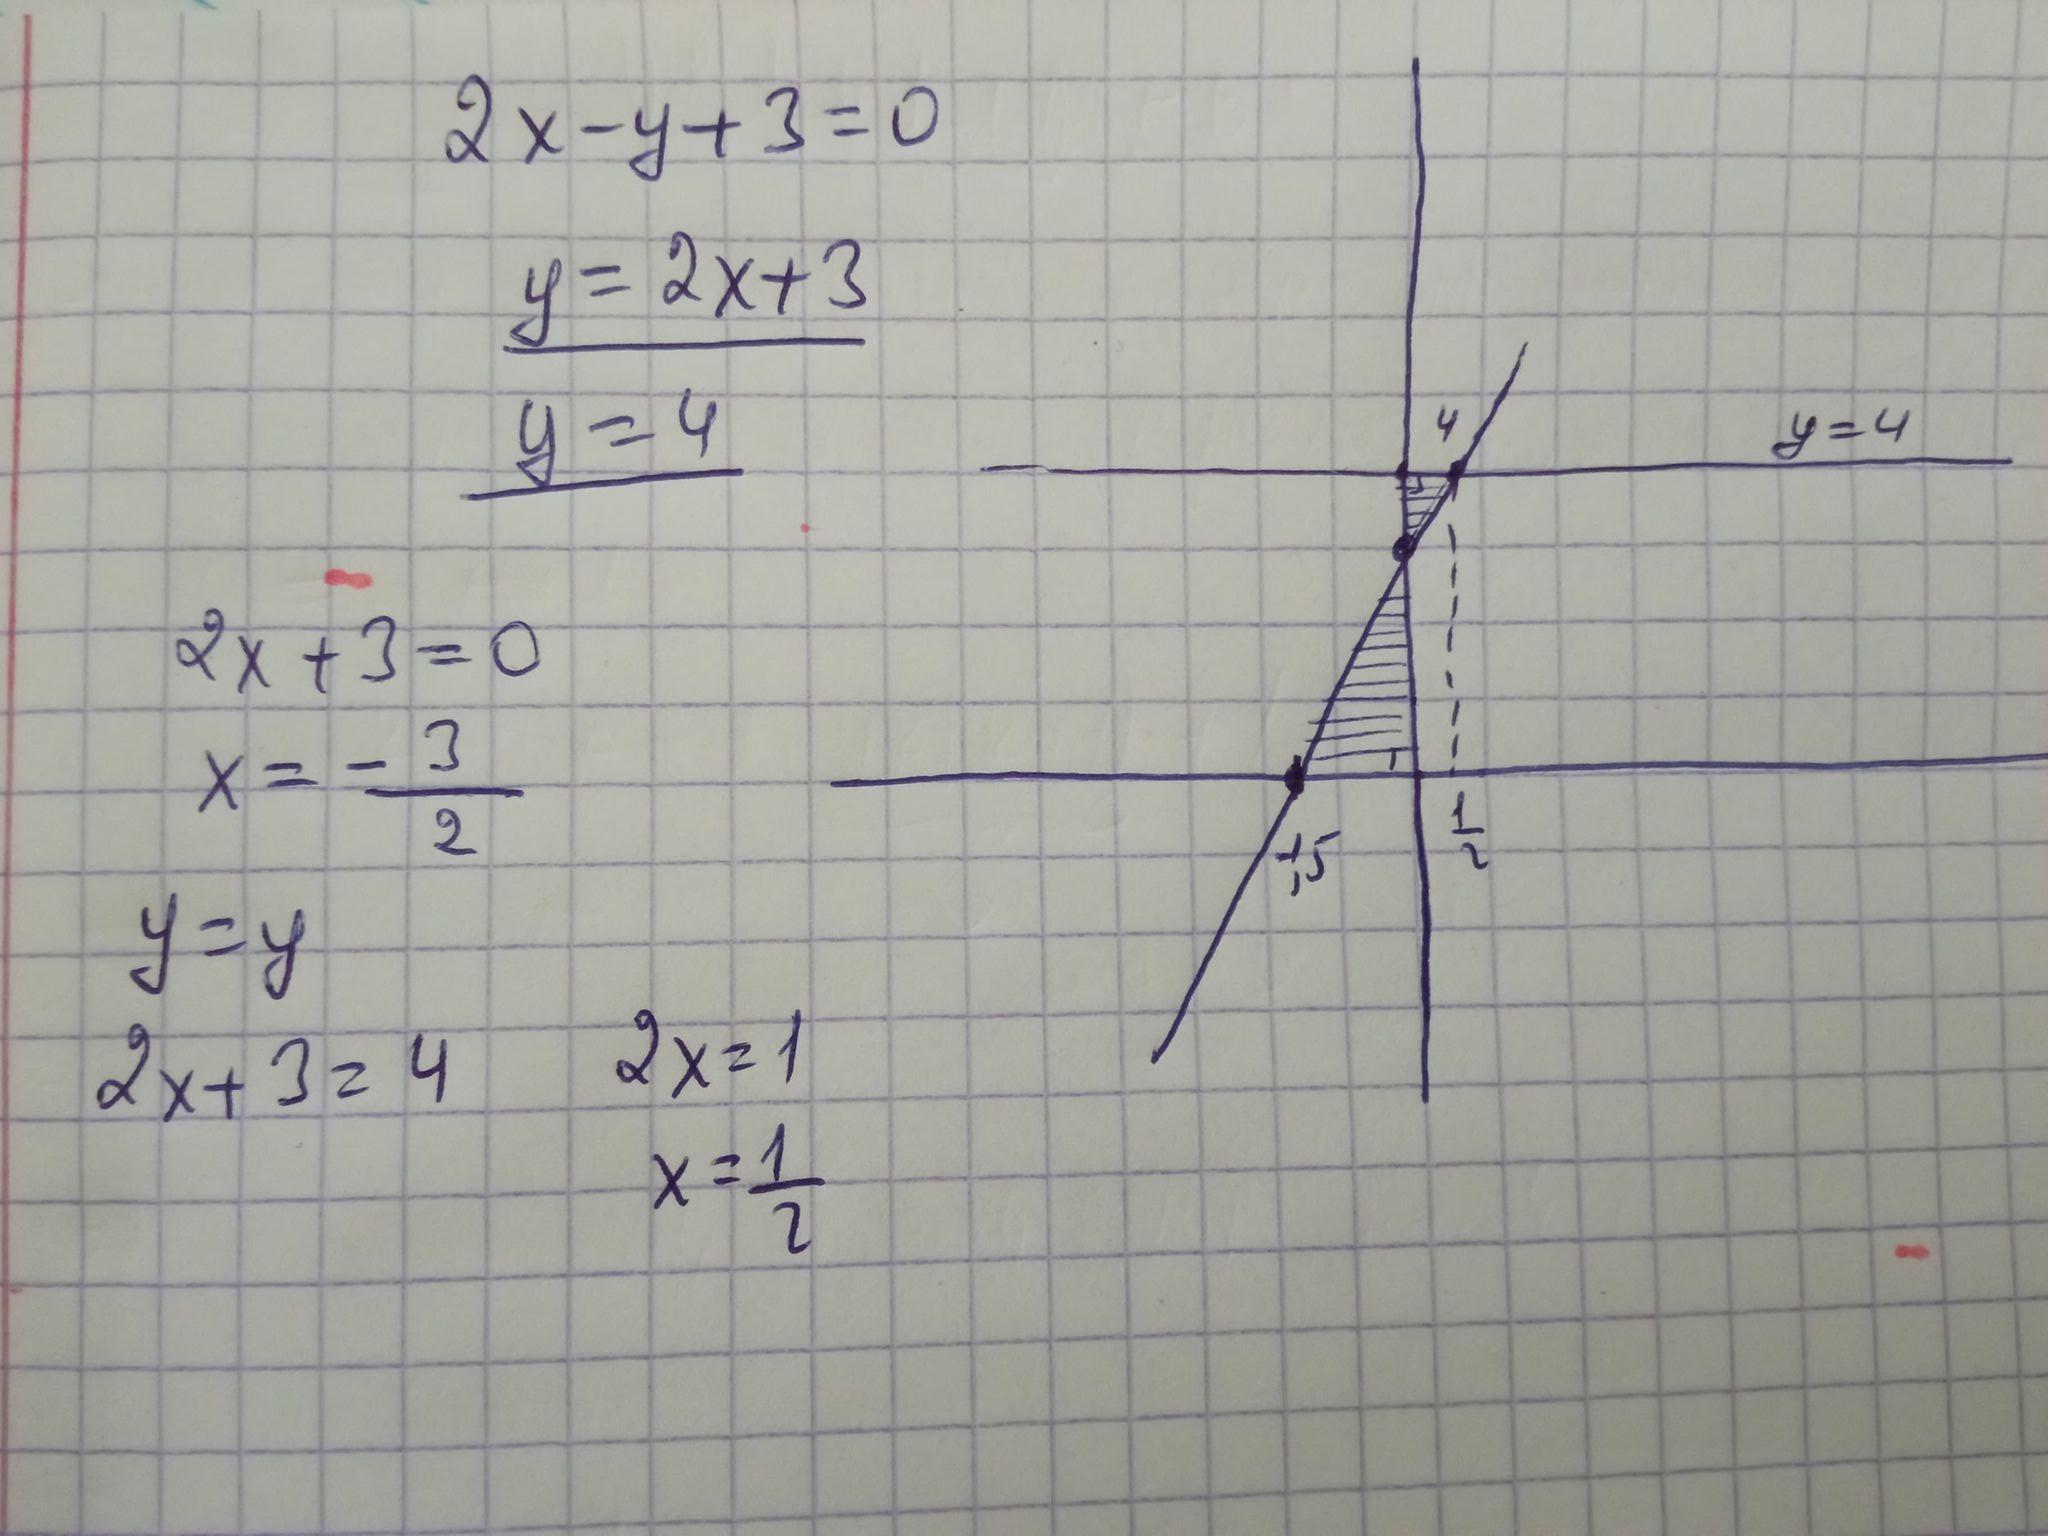 2x-y+3=0
y=2x+3
y=4
2x+3=0
x=-3/2
y=y
2x+3=4
2x=1
x=1/2
4
y=4
1/2